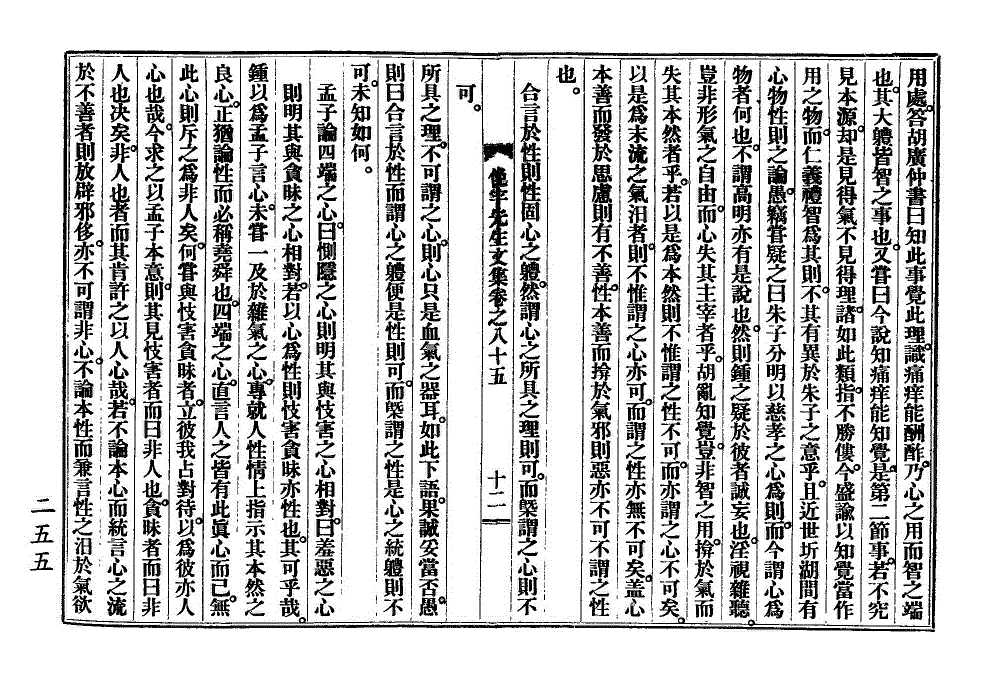 用處。答胡廣仲書曰知此事覺此理。識痛痒能酬酢。乃心之用而智之端
也。其大軆皆智之事也。又嘗曰今說知痛痒能知覺。是第二節事。若不究
見本源。却是見得氣不見得理。諸如此類。指不勝僂。今盛諭以知覺當作
用之物。而仁義禮智爲其則。不其有異於朱子之意乎。且近世圻湖間有
心物性則之論。愚竊嘗疑之曰朱子分明以慈孝之心爲則。而今謂心爲
物者何也。不謂高明亦有是說也。然則鍾之疑於彼者誠妄也。淫視雜聽。
豈非形氣之自由。而心失其主宰者乎。胡亂知覺。豈非智之用揜於氣而
失其本然者乎。若以是爲本然則不惟謂之性不可。而亦謂之心不可矣。
以是爲末流之氣汨者。則不惟謂之心亦可。而謂之性亦無不可矣。盖心
本善而發於思慮則有不善。性本善而揜於氣邪則惡亦不可不謂之性
也。
合言於性則性固心之軆。然謂心之所具之理則可。而槩謂之心則不
可。
俛宇先生文集卷之八十五
十二
所具之理。不可謂之心。則心只是血氣之器耳。如此下語。果誠妥當否。愚
則曰合言於性而謂心之軆便是性則可。而槩謂之性是心之統軆則不
可。未知如何。
孟子論四端之心。曰惻隱之心則明其與忮害之心相對。曰羞惡之心
則明其與貪昧之心相對。若以心爲性則忮害貪昧亦性也。其可乎哉。
鍾以爲孟子言心。未嘗一及於雜氣之心。專就人性情上指示其本然之
良心。正猶論性而必稱堯舜也。四端之心。直言人之皆有此眞心而已。無
此心則斥之爲非人矣。何嘗與忮害貪昧者。立彼我占對待。以爲彼亦人
心也哉。今求之以孟子本意。則其見忮害者而曰非人也。貪昧者而曰非
人也决矣。非人也者而其肯許之以人心哉。若不論本心而統言心之流
於不善者則放辟邪侈。亦不可謂非心。不論本性而兼言性之汨於氣欲
二五五